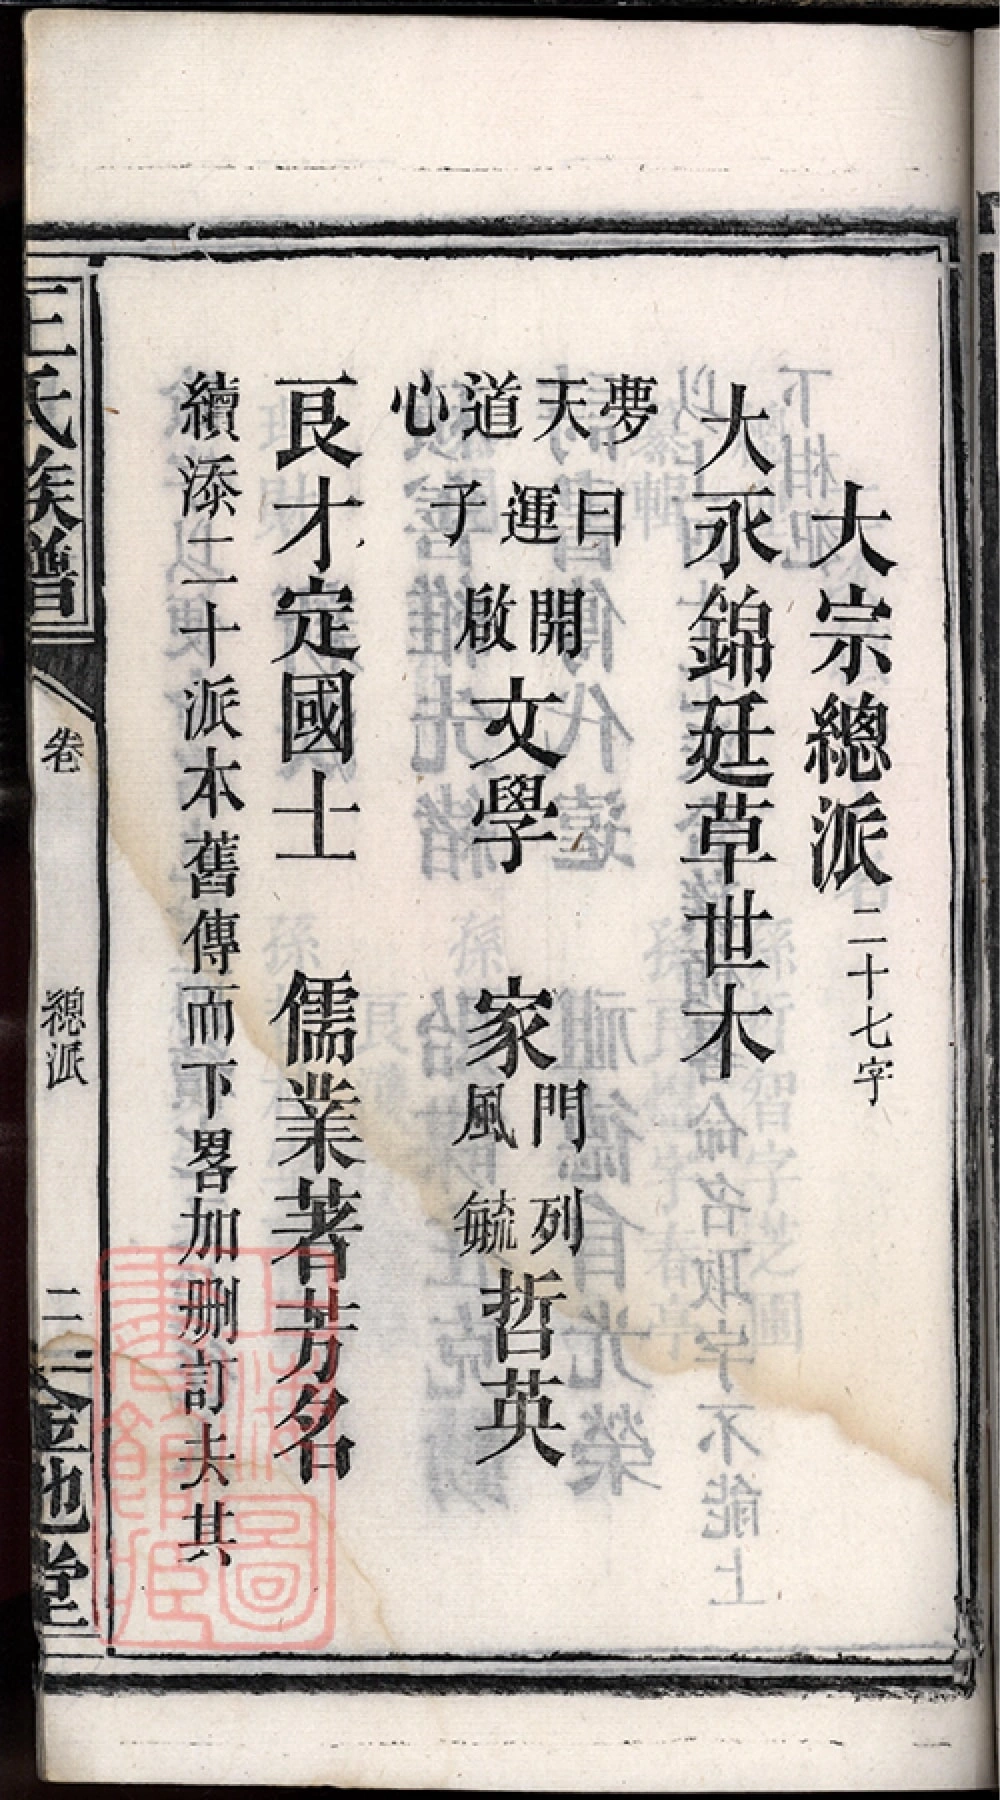 大宗總派 二十七字
大永錦廷草世木
夢曰開 門列
天運啟文學 家風毓哲英
道子
心
良才定國士 儒業著芳名
續添二十派本舊傳而下畧加刪訂夫其
王氏族譜 卷 總派 二
上海圖書館藏